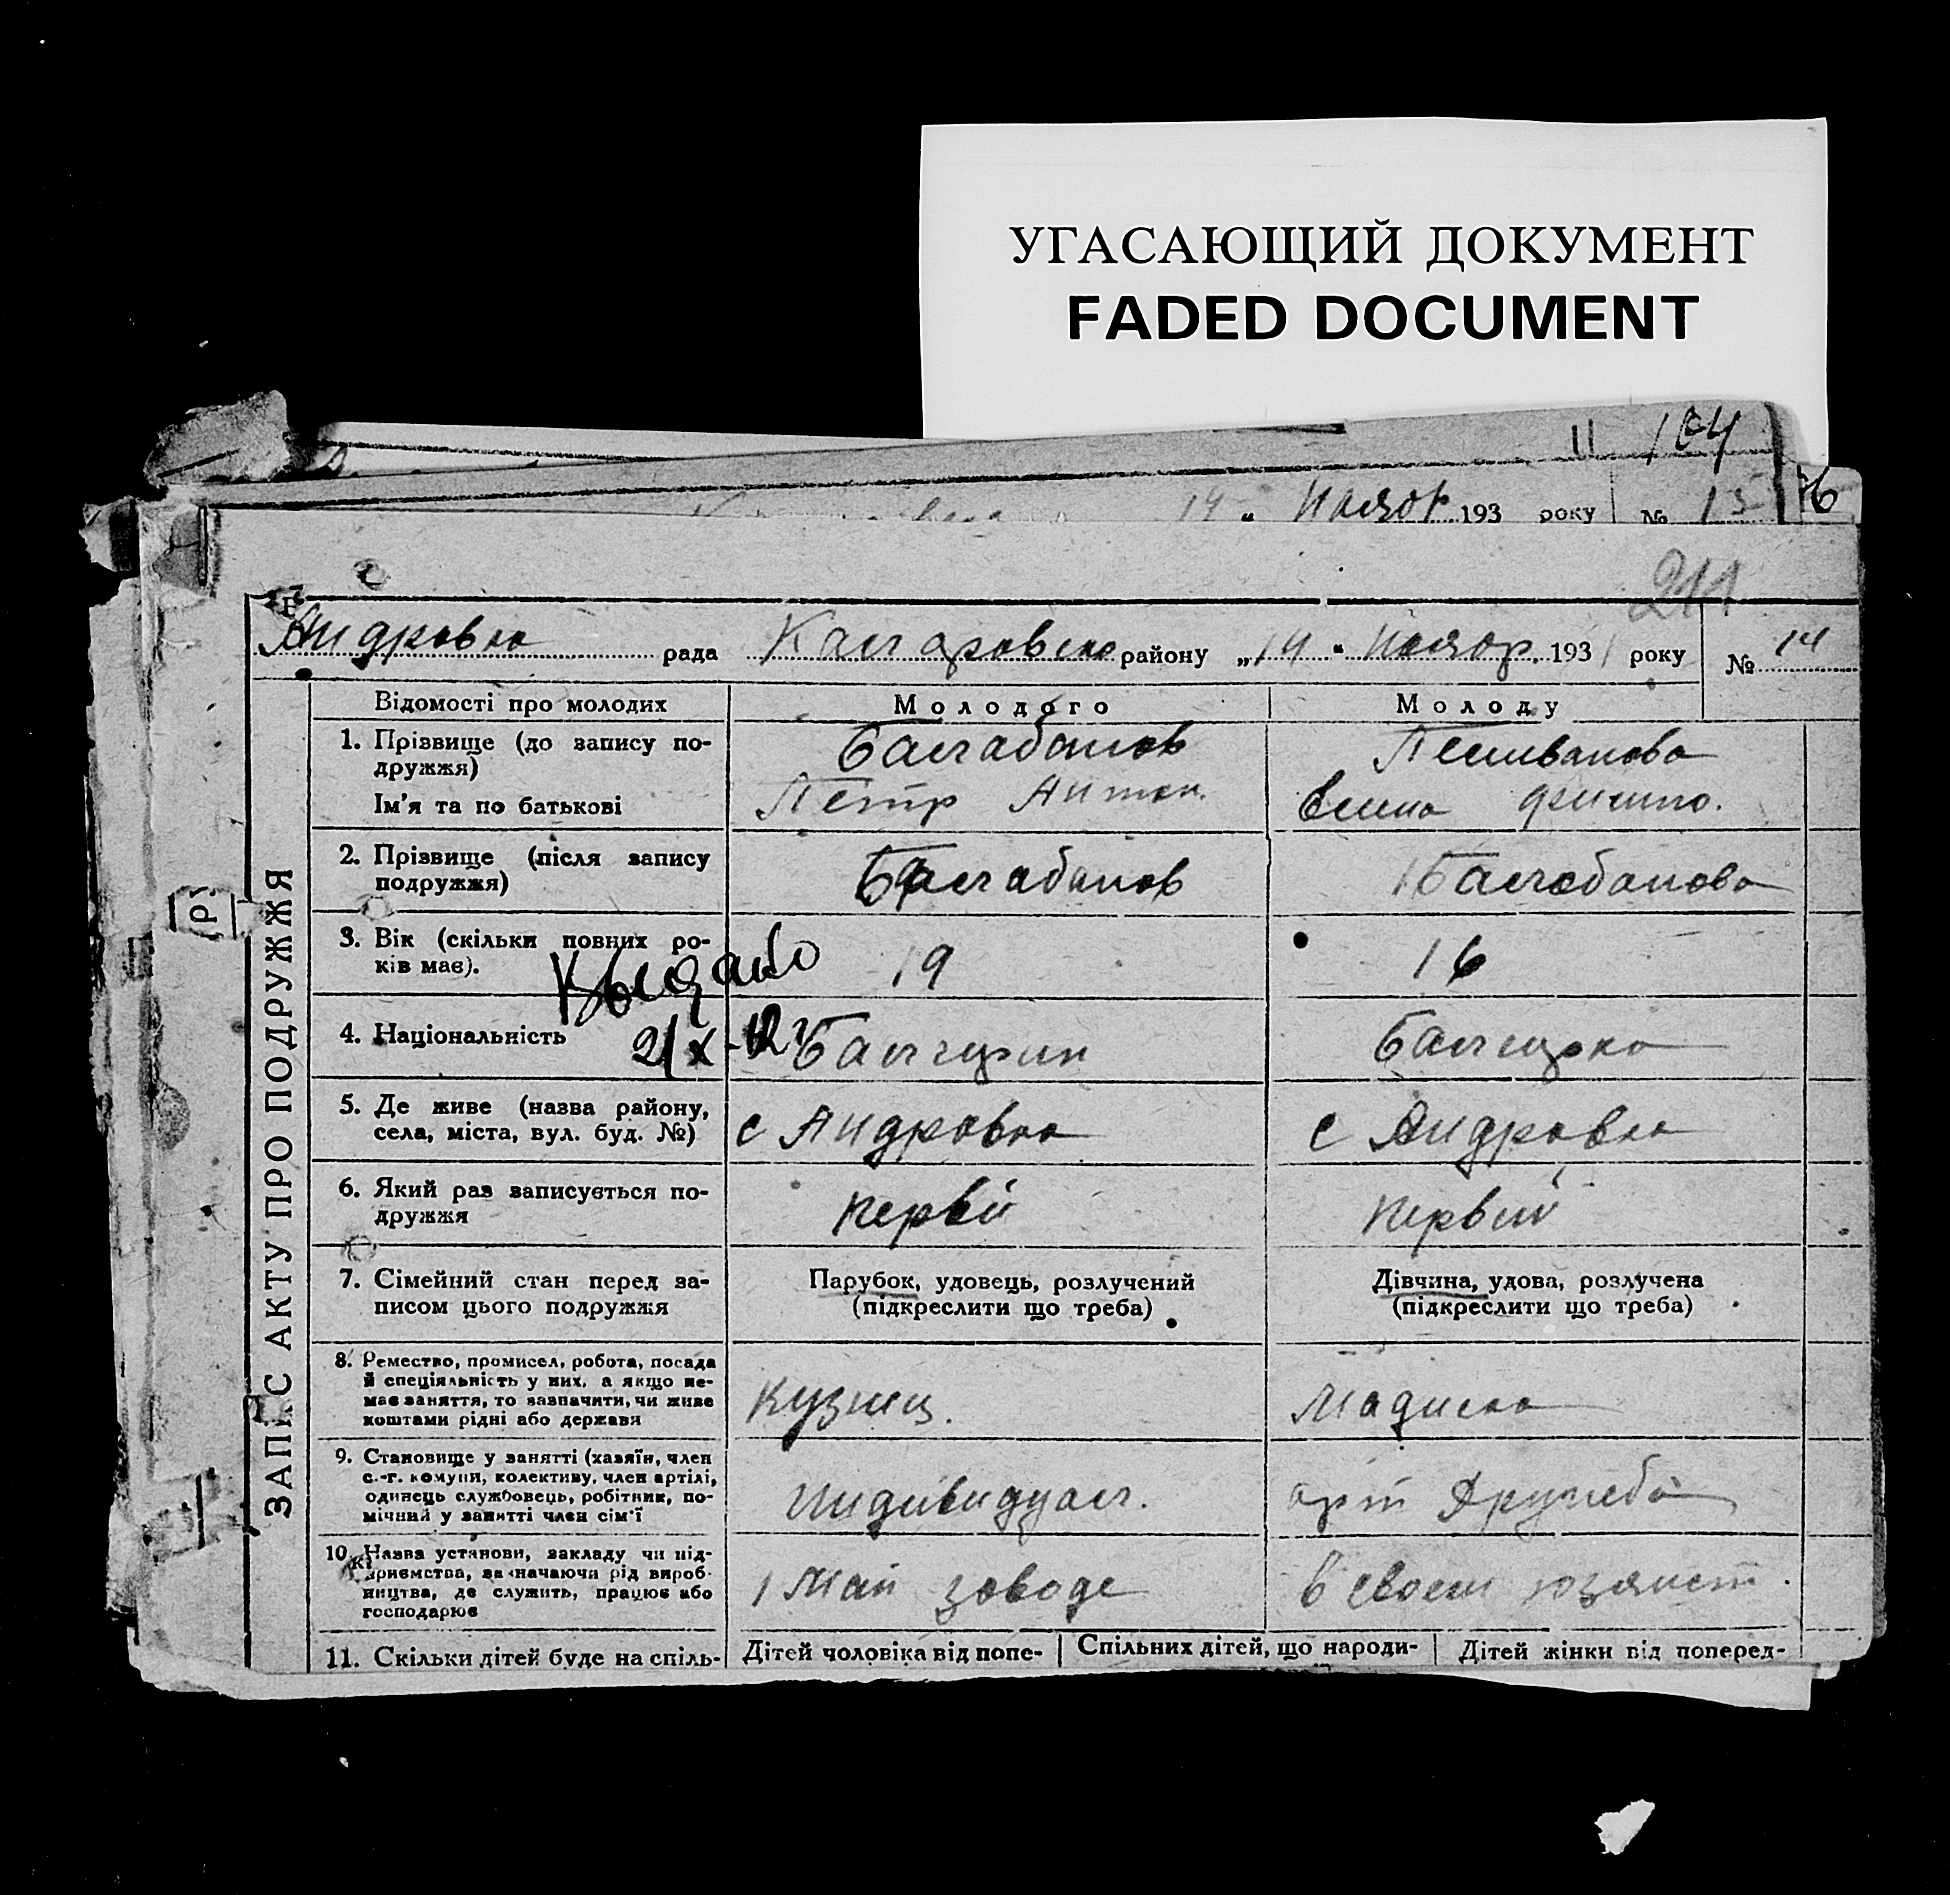 УГАСАЮЩИЙ ДОКУМЕНТ
FADED DOCUMENT
11 164
14 " Ноябр 193 року № 15 76
211
Андровка рада Кангаровско району „14 " Ноябр. 1931 року № 14
ЗАПИС АКТУ ПРО ПОДРУЖЖЯ
Відомості про молодих Молодого Молоду
1. Прізвище (до запису по-
дружжя)
Балгабанов Пеливанова
Ім'я та по батькові Петр Антон. Елена Филипо.
2. Прізвище (після запису
подружжя)
Балгабанов Балгабанова
3. Вік (скільки повних ро-
ків має).
19 16
Выдано
21/X-42г
4. Національність Балгарин Балгарка
5. Де живе (назва району,
села, міста, вул. буд. №)
с Андровка с Андровка
6. Який раз записується по-
дружжя
первй первий
7. Сімейний стан перед за-
писом цього подружжя
Парубок, удовець, розлучений
(підкреслити що треба)
Дівчина, удова, розлучена
(підкреслити що треба)
8. Ремество, промисел, робота, посада
й спеціяльність у них, а якщо не-
має заняття, то зазначити, чи живе
коштами рідні або держави
Кузнец.
9. Становище у занятті (хазяїн, член
с.-г. комуни, колективу, член артілі,
одинець службовець, робітник, по-
мічний у занятті член сім'ї
Индивидуал. арт Дружба
10. Назва установи, закладу чи під-
приємства, зазначаючи рід вироб-
ництва, де служить, працює або
господарює
1 Мая заводе в своем хозяист.
11. Скільки дітей буде на спіль- Дітей чоловіка від попе- Спільних дітей, що народи- Дітей жінки від поперед-